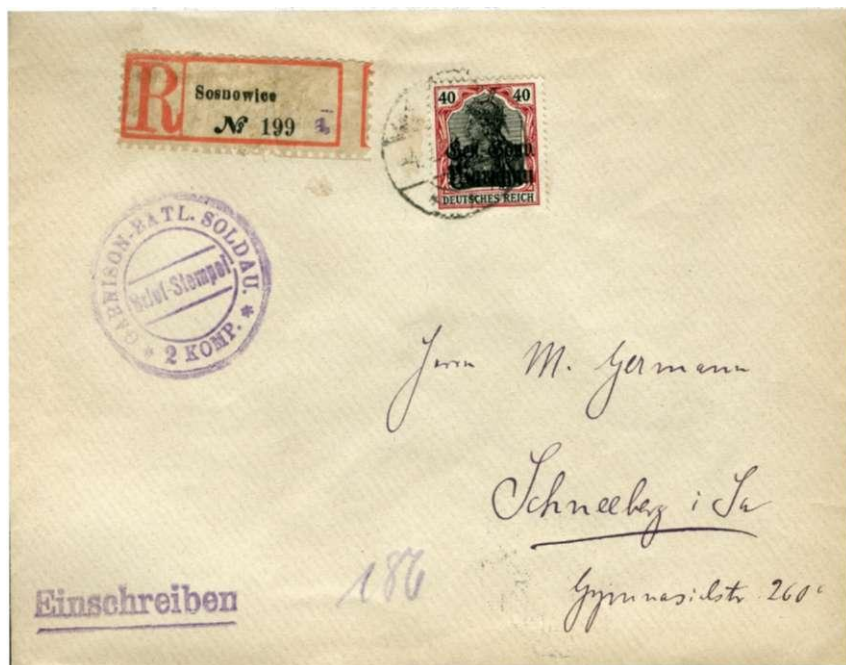 R
Sosnowice
№ 199 a
40 40
Gen.-Gouv.
Warschau
DEUTSCHES REICH
GARNISON-BATL. SOLDAU.
Brief-Stempel
* 2 KOMP. *
Herrn M. Germann
Schneeberg i Sa
Gymnasialstr. 260c
186
Einschreiben